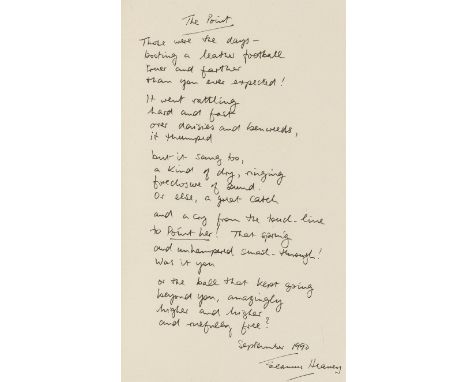 The Point
Those were the days –
booting a leather football
truer and farther
than you ever expected!
It went rattling
hard and fast
over daisies and benweeds,
it thumped
but it sang too,
a kind of dry, ringing
foreclosure of sound.
Or else, a great catch
and a cry from the touch-line
to Point her! That spring
and unhampered smash-through!
Was it you
or the ball that kept going
beyond you, amazingly
higher and higher
and ruefully free?
September 1990
Seamus Heaney